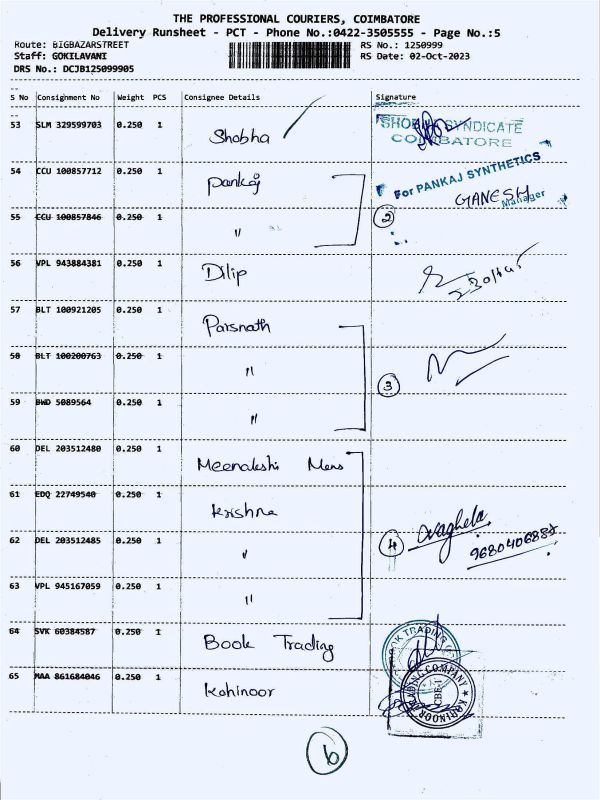 THE PROFESSIONAL COURIERS, COIMBATORE
Delivery Runsheet - PCT - Phone No.:0422-3505555 - Page No.:5
Route: BIGBAZARSTREET RS No.: 1250999
Staff: GOKILAVANI RS Date: 02-Oct-2023
DRS No.: DCJB125099905
S No Consignment No Weight PCS Consignee Details Signature
53 SLM 329599703 0.250 1 Shobha SHOBHA SYNDICATE
COIMBATORE
54 CCU 100857712 0.250 1 Pankaj For PANKAJ SYNTHETICS
GANESH Manager
55 CCU 100857846 0.250 1 " 2
56 VPL 943884381 0.250 1 Dilip
57 BLT 100921205 0.250 1 Parsnath
58 BLT 100200763 0.250 1 " 3
59 BWD 5089564 0.250 1 "
60 DEL 203512480 0.250 1 Meenakshi Mens
61 EDQ 22749540 0.250 1 Krishna
62 DEL 203512485 0.250 1 " 4 Waghela
63 VPL 945167059 0.250 1 "
64 SVK 60384587 0.250 1 Book Trading
65 MAA 861684046 0.250 1 Kohinoor KOHINOOR TRADING COMPANY
CBE-1
6